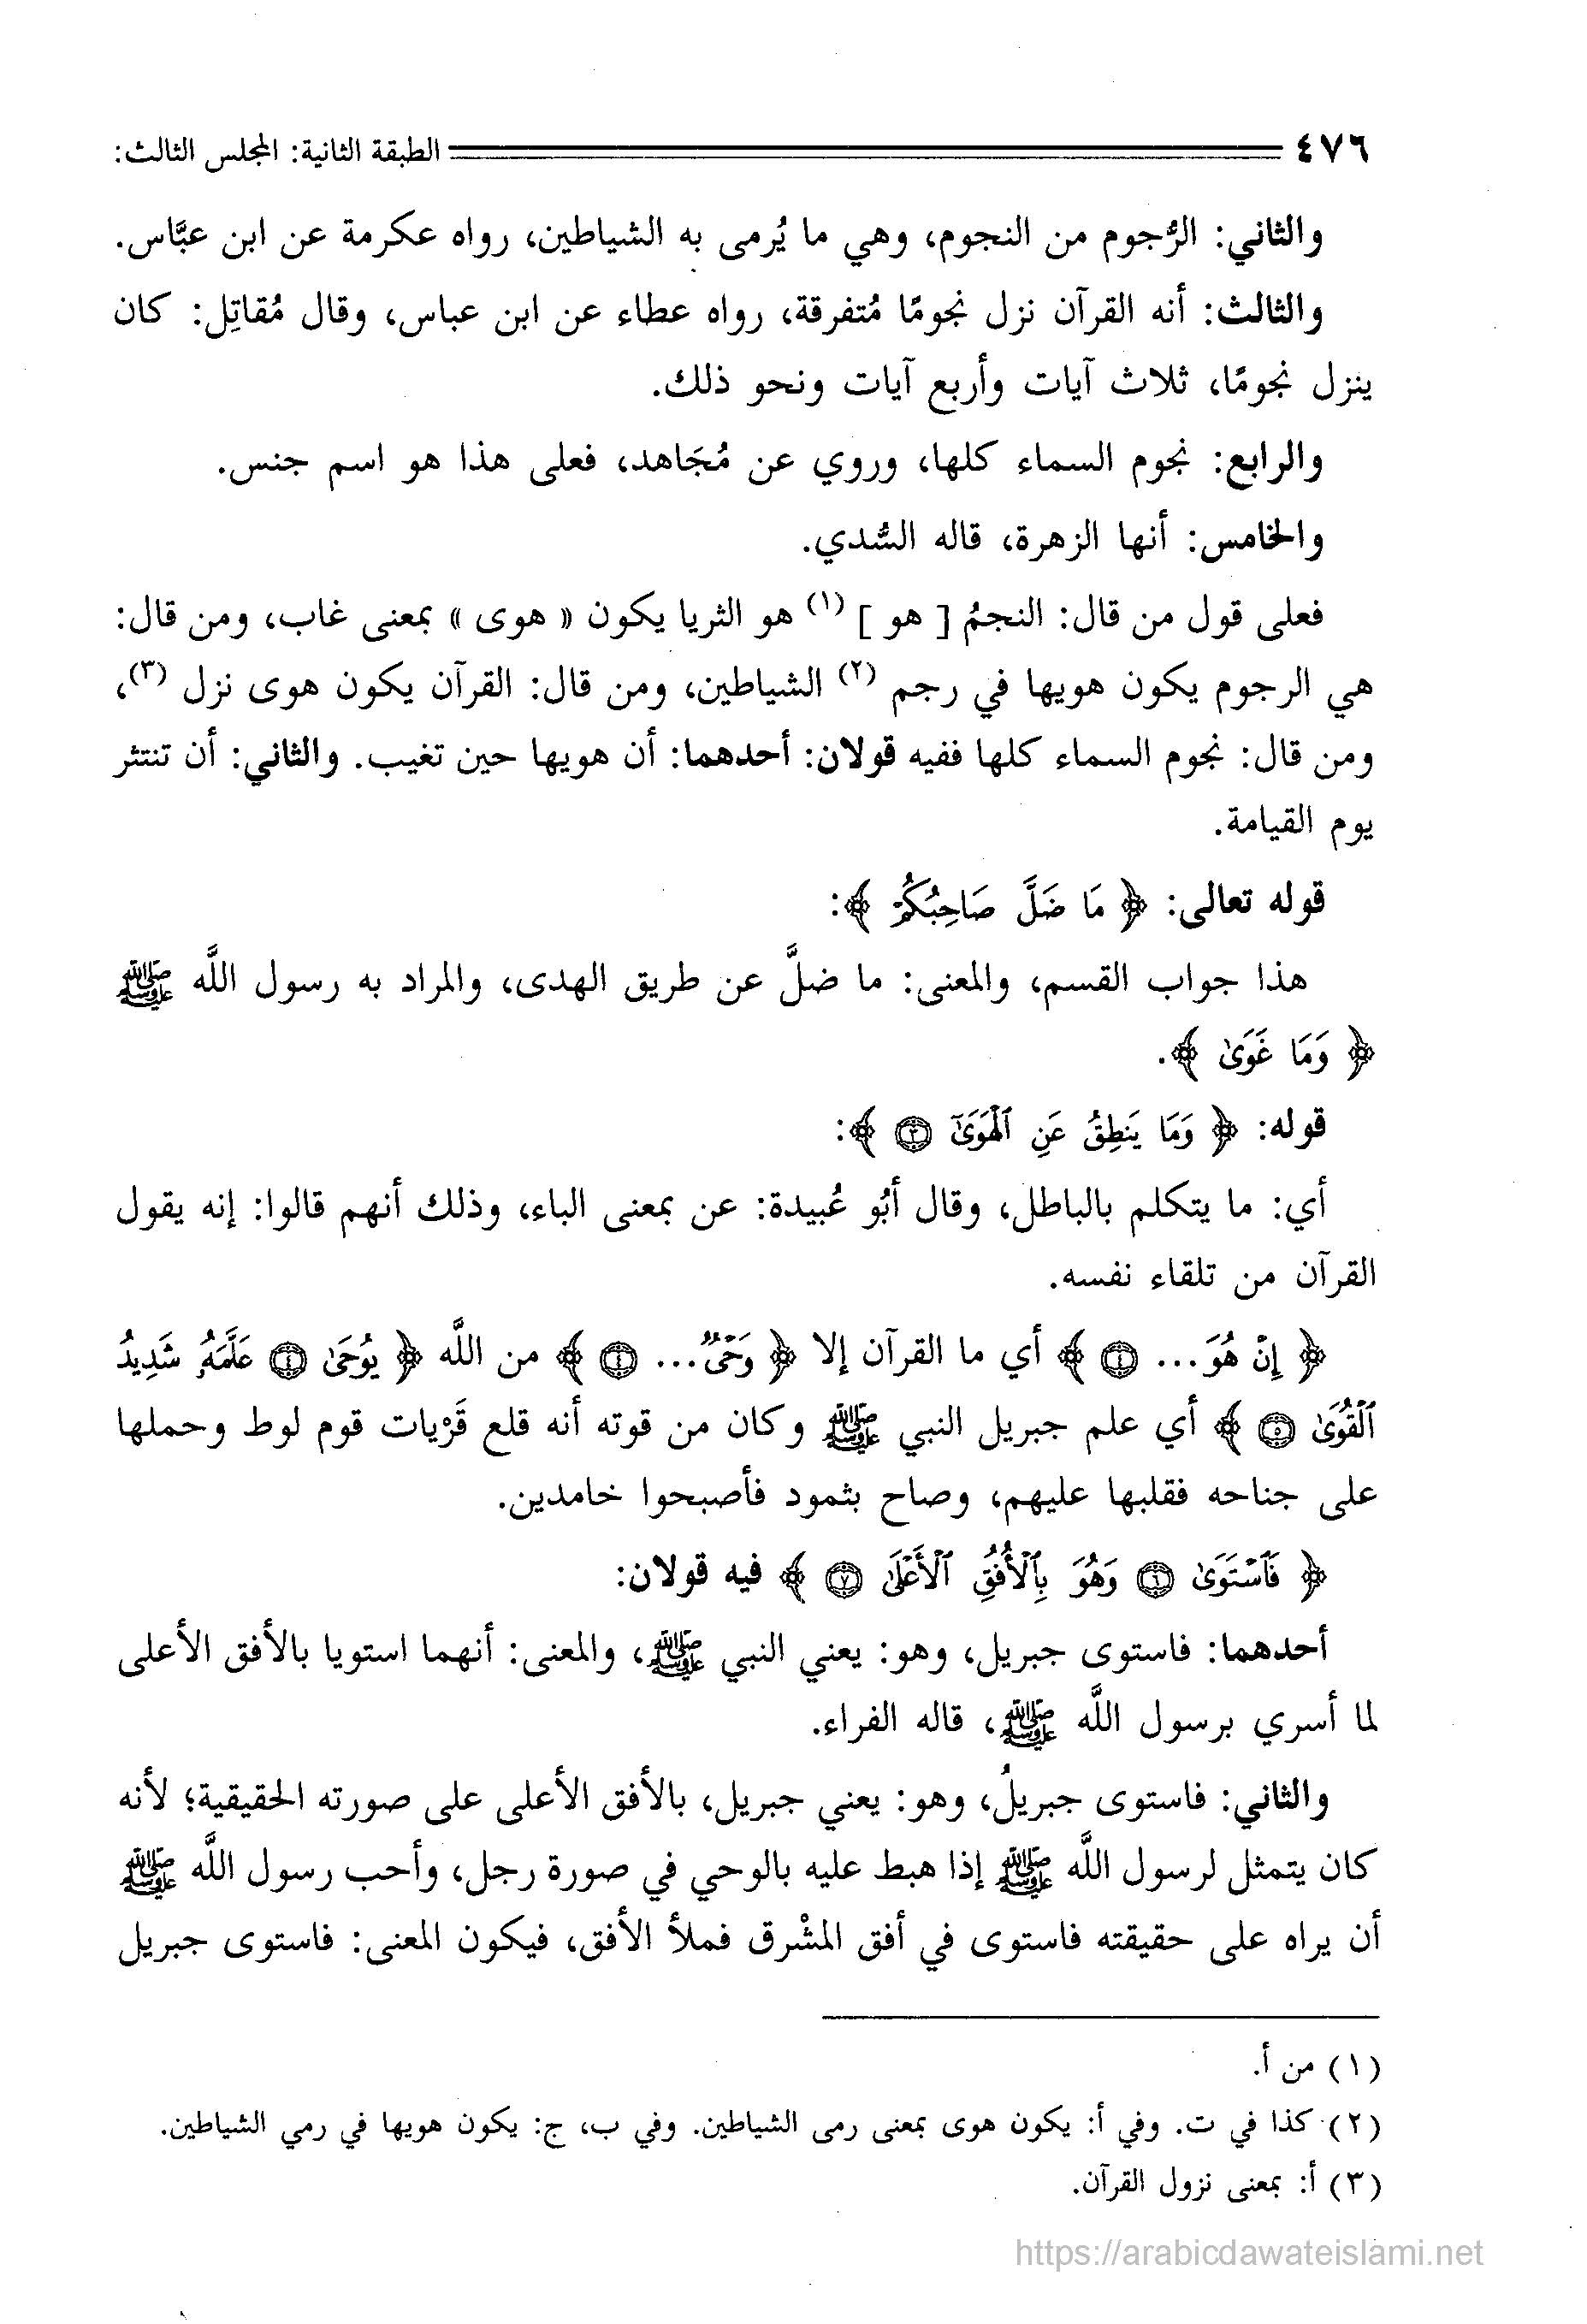 ٤٧٦ الطبقة الثانية: المجلس الثالث:
والثاني: الرُّجوم من النجوم، وهي ما يُرمى به الشياطين، رواه عكرمة عن ابن عبَّاس.
والثالث: أنه القرآن نزل نجومًا مُتفرقة، رواه عطاء عن ابن عباس، وقال مُقاتِل: كان
ينزل نجومًا، ثلاث آيات وأربع آيات ونحو ذلك.
والرابع: نجوم السماء كلها، وروي عن مُجَاهد، فعلى هذا هو اسم جنس.
والخامس: أنها الزهرة، قاله السُّدي.
فعلى قول من قال: النجمُ [ هو ] (١) هو الثريا يكون « هوى » بمعنى غاب، ومن قال:
هي الرجوم يكون هويها في رجم (٢) الشياطين، ومن قال: القرآن يكون هوى نزل (٣)،
ومن قال: نجوم السماء كلها ففيه قولان: أحدهما: أن هويها حين تغيب. والثاني: أن تنتثر
يوم القيامة.
قوله تعالى: ﴿ مَا ضَلَّ صَاحِبُكُمْ ﴾:
هذا جواب القسم، والمعنى: ما ضلَّ عن طريق الهدى، والمراد به رسول اللَّه ﷺ
﴿ وَمَا غَوَىٰ ﴾.
قوله: ﴿ وَمَا يَنطِقُ عَنِ ٱلْهَوَىٰٓ ٣ ﴾:
أي: ما يتكلم بالباطل، وقال أبُو عُبيدة: عن بمعنى الباء، وذلك أنهم قالوا: إنه يقول
القرآن من تلقاء نفسه.
﴿ إِنْ هُوَ ... ٤ ﴾ أي ما القرآن إلا ﴿ وَحْىٌ ... ٤ ﴾ من اللَّه ﴿ يُوحَىٰ ٤ عَلَّمَهُۥ شَدِيدُ
ٱلْقُوَىٰ ٥ ﴾ أي علم جبريل النبي ﷺ وكان من قوته أنه قلع قَرْيات قوم لوط وحملها
على جناحه فقلبها عليهم، وصاح بثمود فأصبحوا خامدين.
﴿ فَٱسْتَوَىٰ ٦ وَهُوَ بِٱلْأُفُقِ ٱلْأَعْلَىٰ ٧ ﴾ فيه قولان:
أحدهما: فاستوى جبريل، وهو: يعني النبي ﷺ، والمعنى: أنهما استويا بالأفق الأعلى
لما أسري برسول اللَّه ﷺ، قاله الفراء.
والثاني: فاستوى جبريلُ، وهو: يعني جبريل، بالأفق الأعلى على صورته الحقيقية؛ لأنه
كان يتمثل لرسول اللَّه ﷺ إذا هبط عليه بالوحي في صورة رجل، وأحب رسول اللَّه ﷺ
أن يراه على حقيقته فاستوى في أفق المشْرق فملأ الأفق، فيكون المعنى: فاستوى جبريل
(١) من أ.
(٢) كذا في ت. وفي أ: يكون هوى بمعنى رمى الشياطين. وفي ب، ج: يكون هويها في رمي الشياطين.
(٣) أ: بمعنى نزول القرآن.
https://arabicdawateislami.net